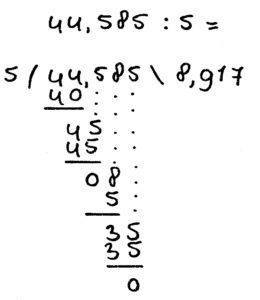 44,585 : 5 =
5 / 44,585 \ 8,917
40
45
45
08
5
35
35
0